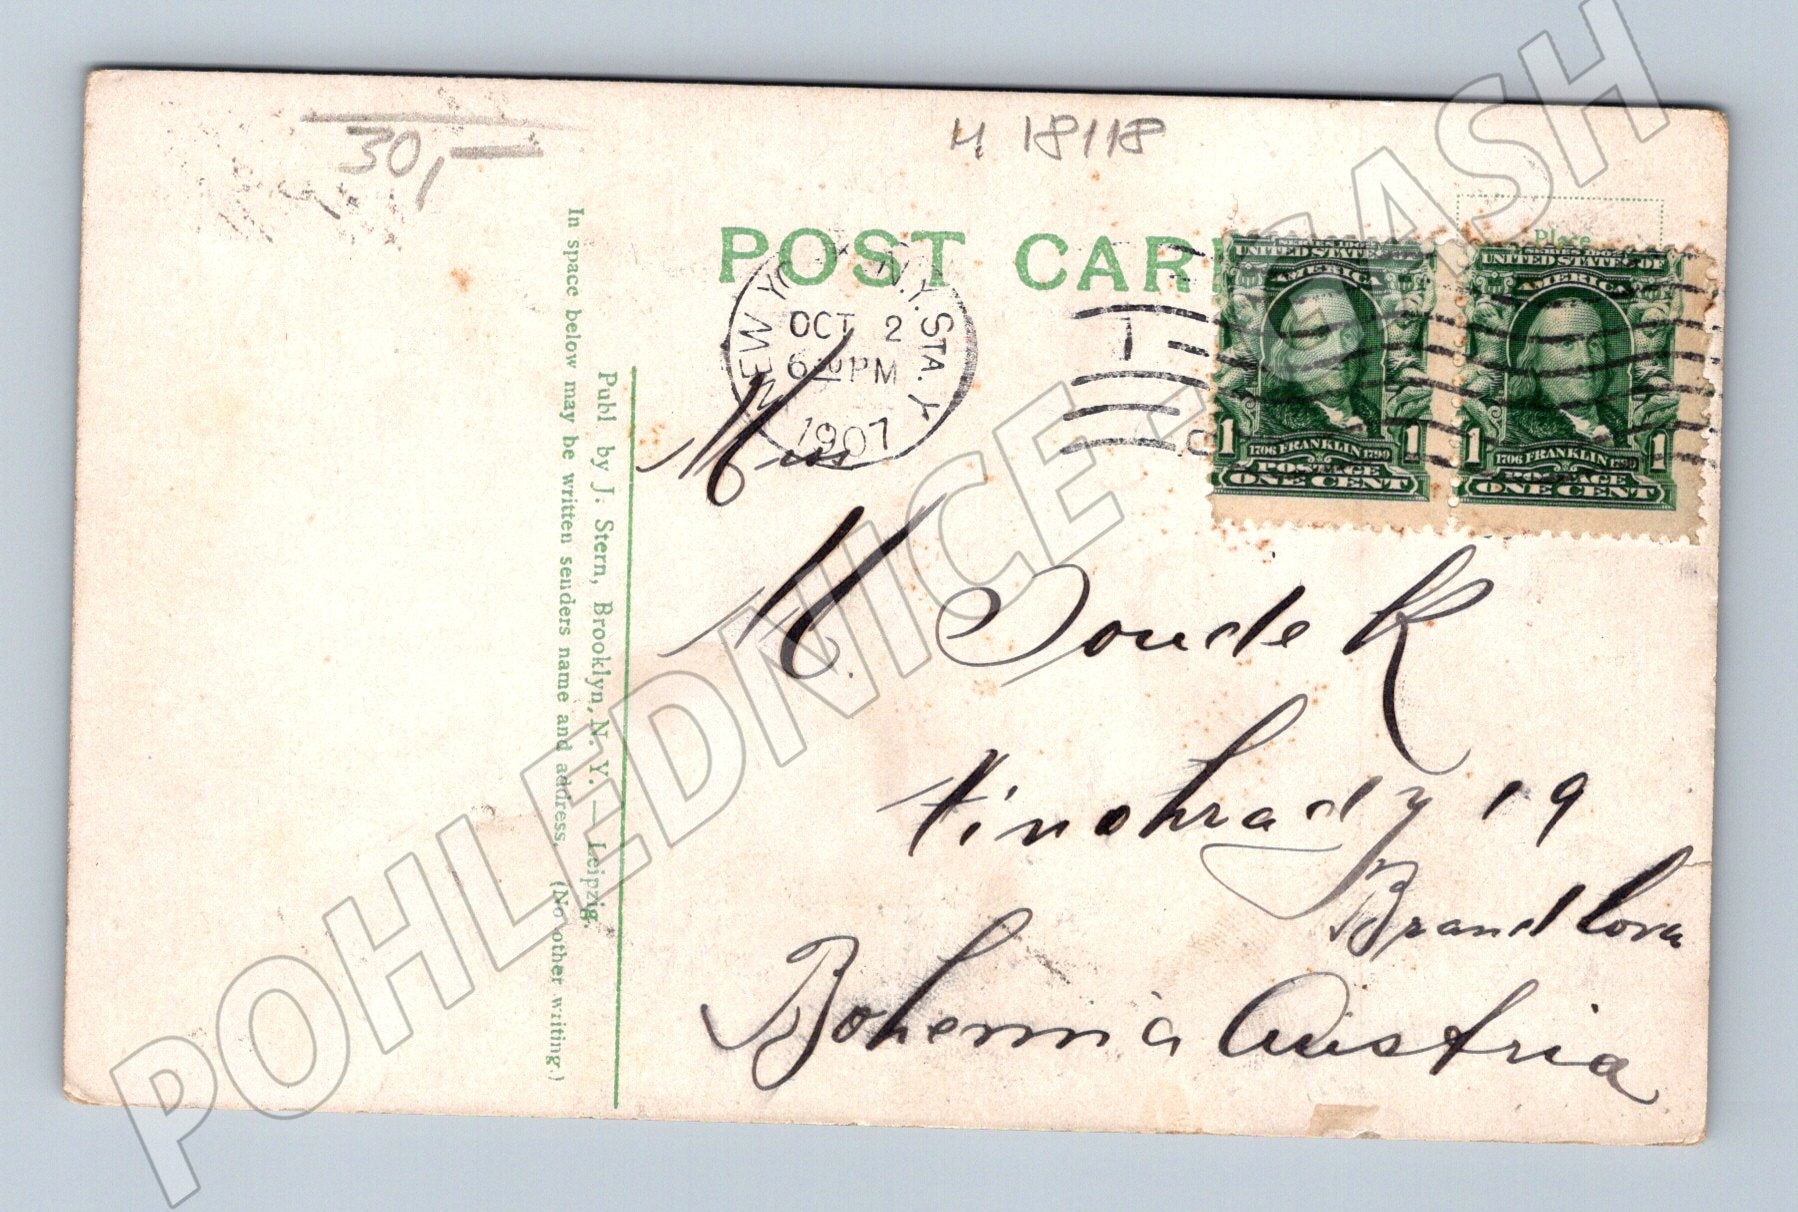 30,—
H 18118
POST CAR
Place
NEW YO N.Y. STA. Y
OCT 2
6 PM
1907
SERIES 1902
UNITED STATES OF
AMERICA
1 1706 FRANKLIN 1790 1
POSTAGE
ONE CENT
SERIES 1902
UNITED STATES OF
AMERICA
1 1706 FRANKLIN 1790 1
POSTAGE
ONE CENT
In space below may be written senders name and address. (No other writing.)
Publ by J. Stern, Brooklyn, N. Y. — Leipzig.
M. Soudek
Vinohrady 19
Bohemia Austria
POHLEDNICE - SASH